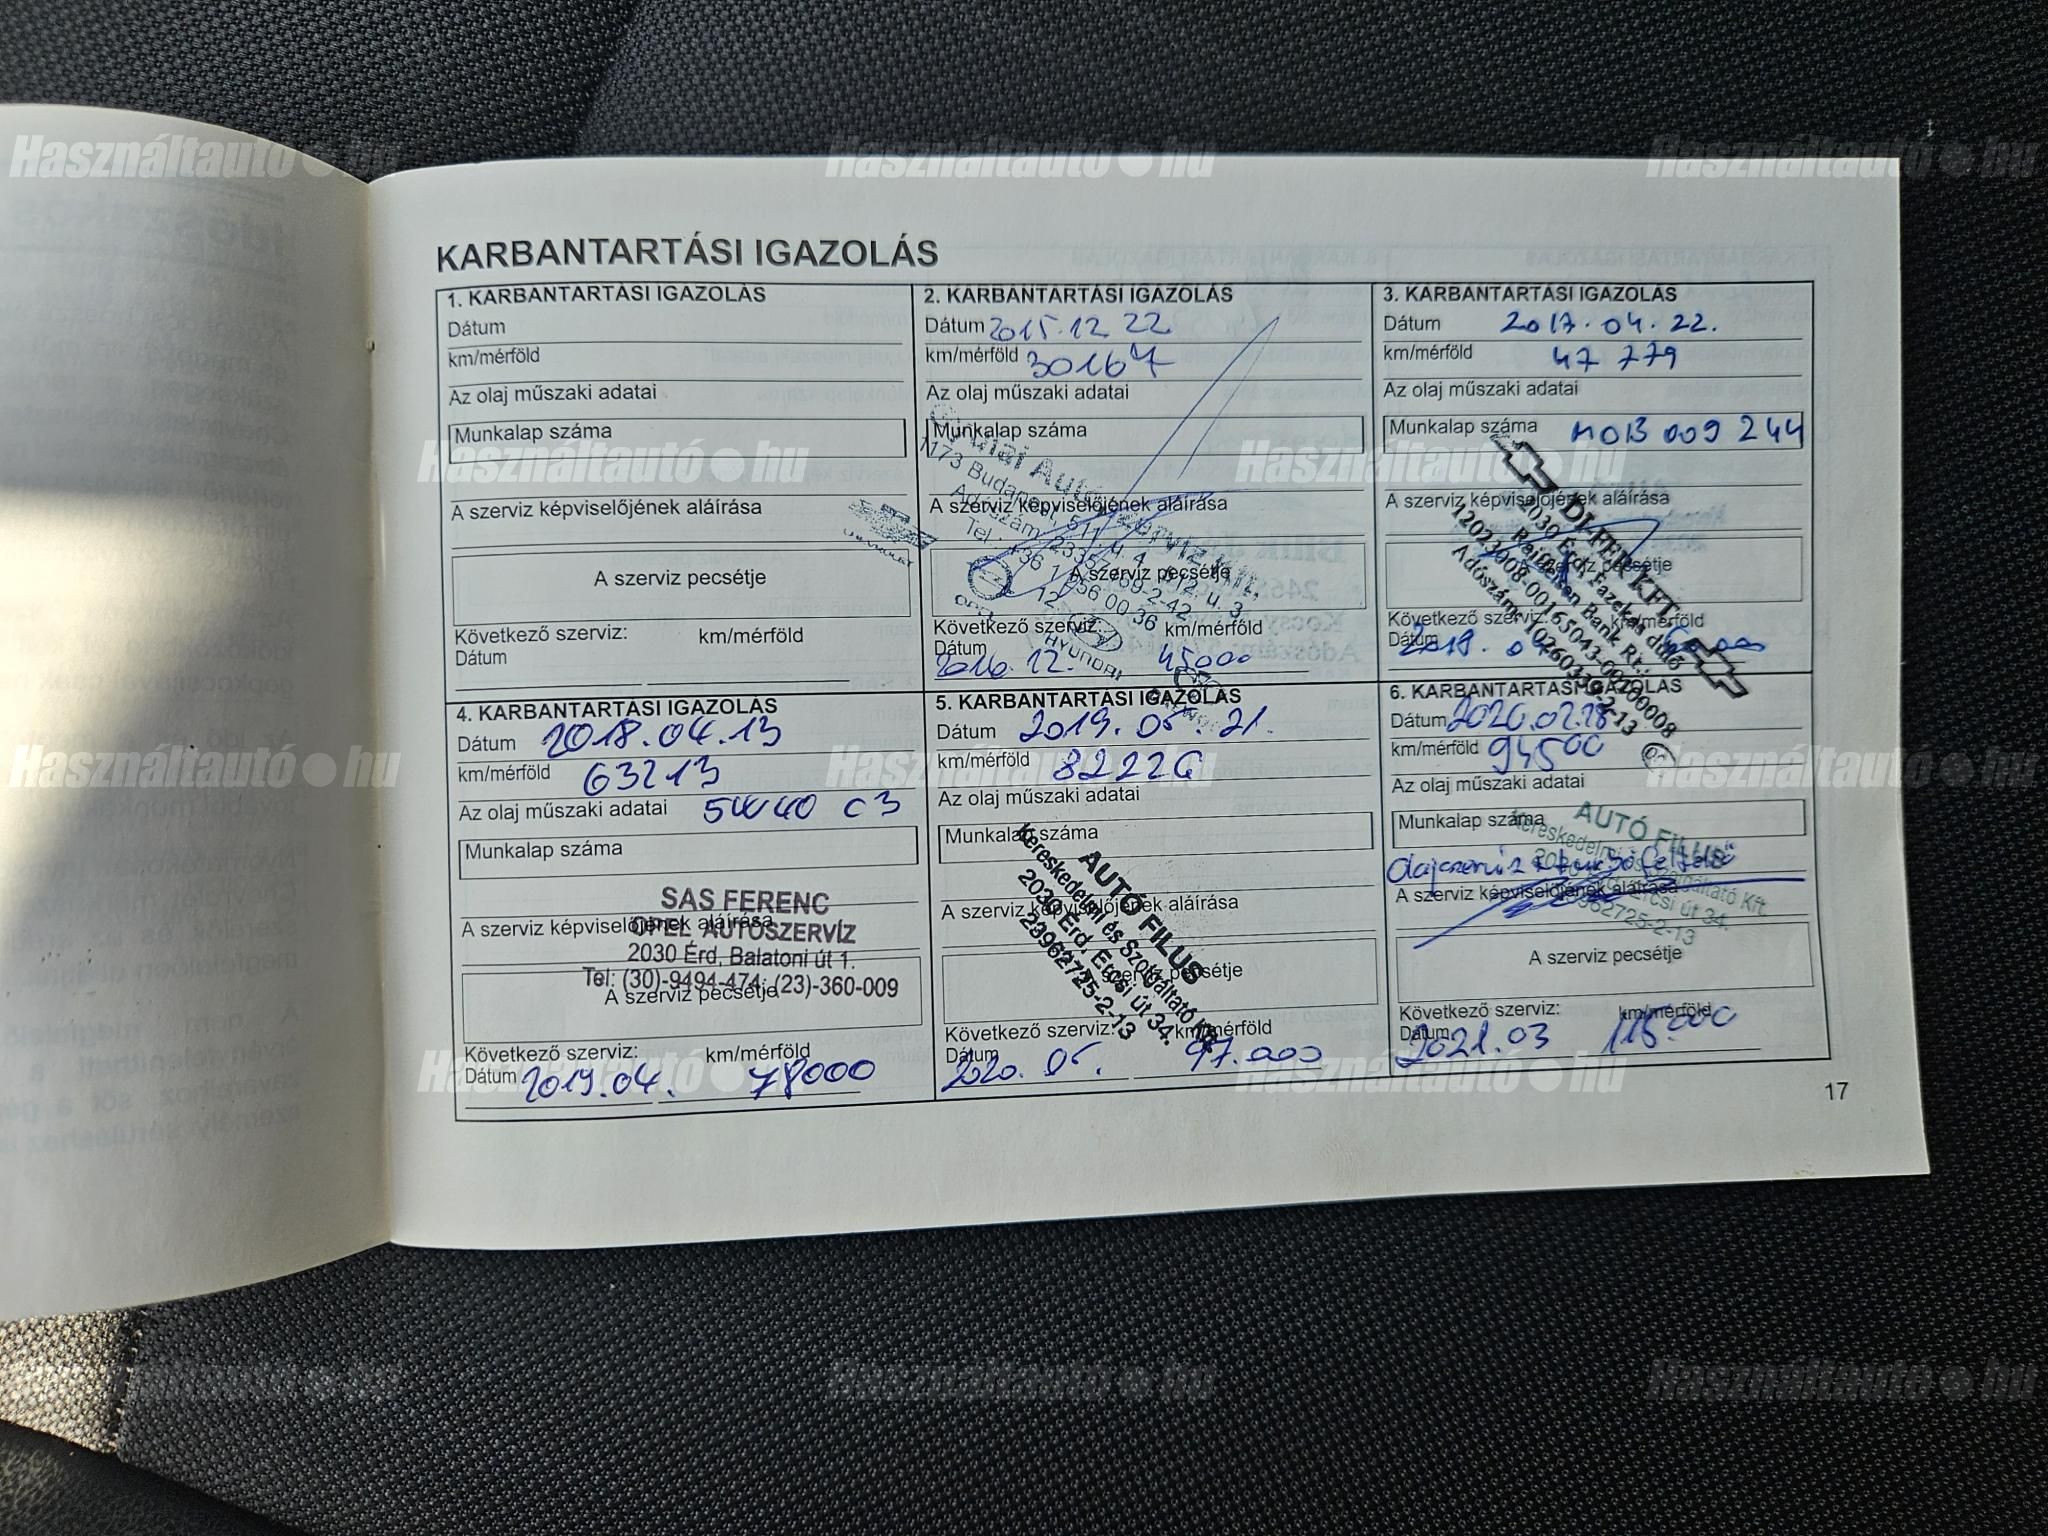 KARBANTARTÁSI IGAZOLÁS
1. KARBANTARTÁSI IGAZOLÁS
Dátum
km/mérföld
Az olaj műszaki adatai
Munkalap száma
A szerviz képviselőjének aláírása
A szerviz pecsétje
Következő szerviz: km/mérföld
Dátum
2. KARBANTARTÁSI IGAZOLÁS
Dátum 2015.12 22
km/mérföld 30167
Az olaj műszaki adatai
Munkalap száma
1173 Budapest,
A szerviz képviselőjének aláírása
A szerviz pecsétje
OPEL
HYUNDAI
Következő szerviz: km/mérföld
Dátum 2016.12. 45000
3. KARBANTARTÁSI IGAZOLÁS
Dátum 2017.04.22.
km/mérföld 47 779
Az olaj műszaki adatai
Munkalap száma MOB 009 244
A szerviz képviselőjének aláírása
DI-FER KFT.
2030 Érd, Fazekas dűlő
Raiffeisen Bank Rt.:
12023008-00165043-00100008
Adószám: 10260339-2-13
A szerviz pecsétje
Következő szerviz: km/mérföld
Dátum
4. KARBANTARTÁSI IGAZOLÁS
Dátum 2018.04.13
km/mérföld 63213
Az olaj műszaki adatai 5W40 C3
Munkalap száma
SAS FERENC
A szerviz képviselőjének aláírása
OPEL AUTÓSZERVÍZ
2030 Érd, Balatoni út 1.
Tel: (30)-9494-474; (23)-360-009
A szerviz pecsétje
Következő szerviz: km/mérföld
Dátum 2019.04. 78000
5. KARBANTARTÁSI IGAZOLÁS
Dátum 2019.05.21.
km/mérföld 82226
Az olaj műszaki adatai
Munkalap száma
AUTÓ FILUS
Kereskedelmi és Szolgáltató Kft.
2030 Érd, Ercsi út 34.
23962725-2-13
A szerviz képviselőjének aláírása
A szerviz pecsétje
Következő szerviz: km/mérföld
Dátum 2020.05. 97.000
6. KARBANTARTÁSI IGAZOLÁS
Dátum 2020.02.28
km/mérföld 94500
Az olaj műszaki adatai
Munkalap száma
AUTÓ FILUS
Kereskedelmi és Szolgáltató Kft.
Olajszerviz
A szerviz képviselőjének aláírása
A szerviz pecsétje
Következő szerviz: km/mérföld
Dátum 2021.03 115.000
17
Használtautó.hu